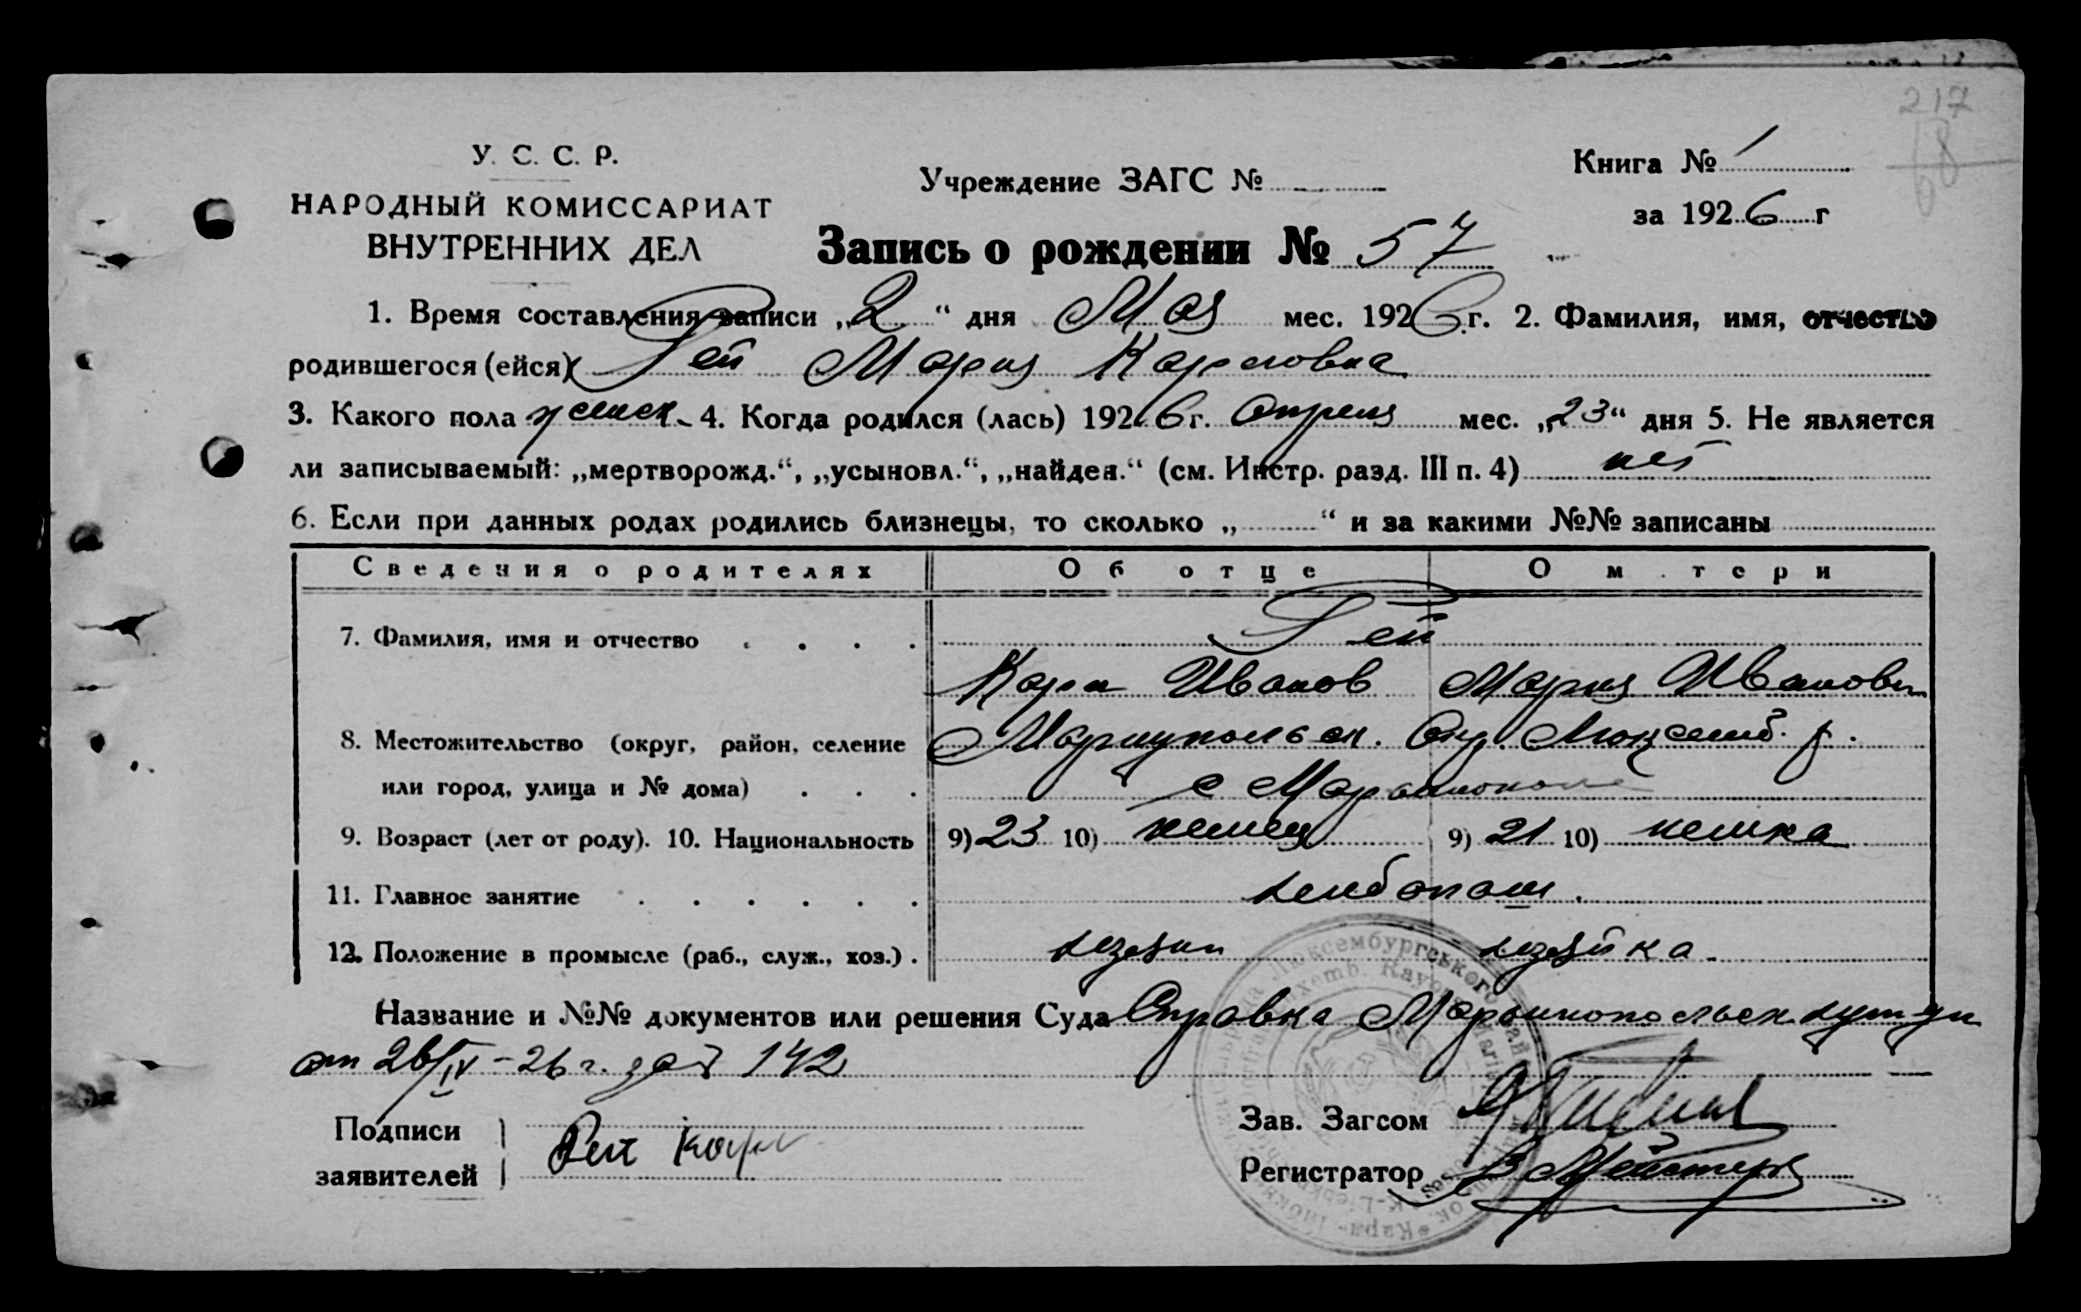 217
68
У. С. С. Р.
НАРОДНЫЙ КОМИССАРИАТ
ВНУТРЕННИХ ДЕЛ
Учреждение ЗАГС №
Книга № 1
за 1926 г
Запись о рождении № 57
1. Время составления записи „2“ дня Мая мес. 1926 г. 2. Фамилия, имя, отчество
родившегося (ейся) Рей Мария Карловна
3. Какого пола женск. 4. Когда родился (лась) 1926 г. Апреля мес. „23“ дня 5. Не является
ли записываемый: „мертворожд.“, „усыновл.“, „найден.“ (см. Инстр. разд. III п. 4) нет
6. Если при данных родах родились близнецы, то сколько „ “ и за какими №№ записаны
Сведения о родителях Об отце О м тери
7. Фамилия, имя и отчество Рей
Карл Иванов Мария Иванови
8. Местожительство (округ, район, селение Мариупольск. Окр. Люксемб. р.
или город, улица и № дома) с Марьинополь
9. Возраст (лет от роду). 10. Национальность 9) 23 10) немец 9) 21 10) немка
11. Главное занятие хлебопаш.
12. Положение в промысле (раб., служ., хоз.) хозяин хозяйка
Название и №№ документов или решения Суда Справка Марьинопольск
от 26/IV-26 г. за № 142
Подписи
заявителей Рей Карл
Зав. Загсом
Регистратор В Мейстер
Люксембургського